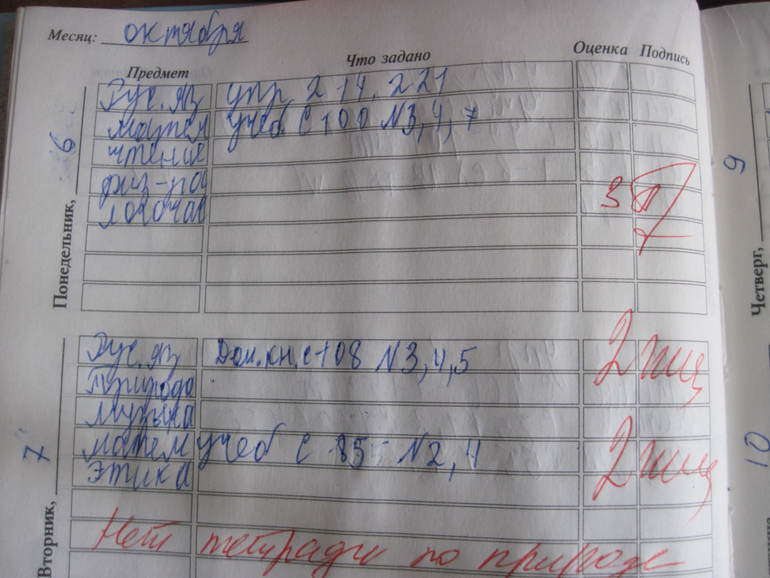 Месяц: октября
Предмет Что задано Оценка Подпись
Понедельник, 6
Рус. яз упр 214, 221
матем учеб С 100 N3, 4, 7
чтение
физ-ра
логочас
3
Вторник, 7
Рус. яз Дом. кн. с 108 N3, 4, 5 2
Природа
Музыка
матем учеб С 85 N2, 4 2
этика
Нет тетради по природе
Четверг, 9
10